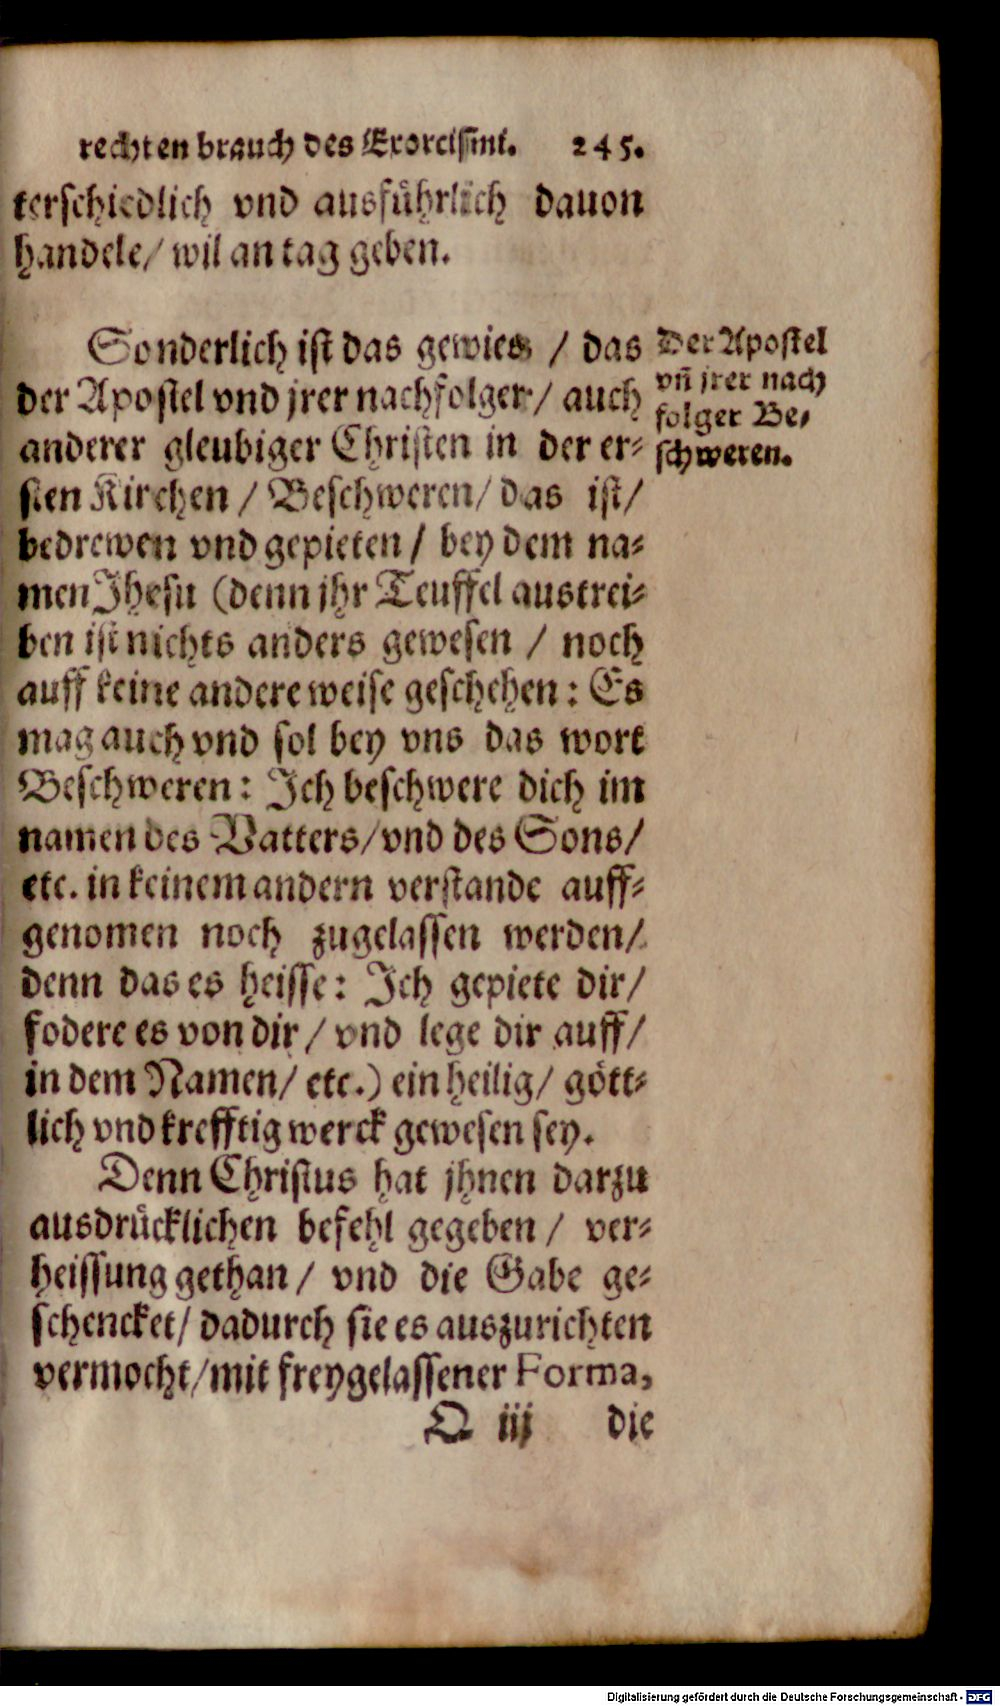 rechten brauch des Exorcismi. 245.
terschiedlich vnd ausführlich dauon
handele/ wil an tag geben.
Sonderlich ist das gewies / das
der Apostel vnd jrer nachfolger/ auch
anderer gleubiger Christen in der er-
sten Kirchen / Beschweren/ das ist/
bedrewen vnd gepieten / bey dem na-
men Jhesu (denn jhr Teuffel austrei-
ben ist nichts anders gewesen / noch
auff keine andere weise geschehen: Es
mag auch vnd sol bey vns das wort
Beschweren: Ich beschwere dich im
namen des Vatters/ vnd des Sons/
etc. in keinem andern verstande auff-
genomen noch zugelassen werden/
denn das es heisse: Ich gepiete dir/
fodere es von dir / vnd lege dir auff/
in dem Namen/ etc.) ein heilig/ gött-
lich vnd krefftig werck gewesen sey.
Denn Christus hat jhnen darzu
ausdrücklichen befehl gegeben / ver-
heissung gethan / vnd die Gabe ge-
schencket/ dadurch sie es auszurichten
vermocht/ mit freygelassener Forma,
Q iij die
Der Apostel
vñ jrer nach
folger Be-
schweren.
Digitalisierung gefördert durch die Deutsche Forschungsgemeinschaft - DFG